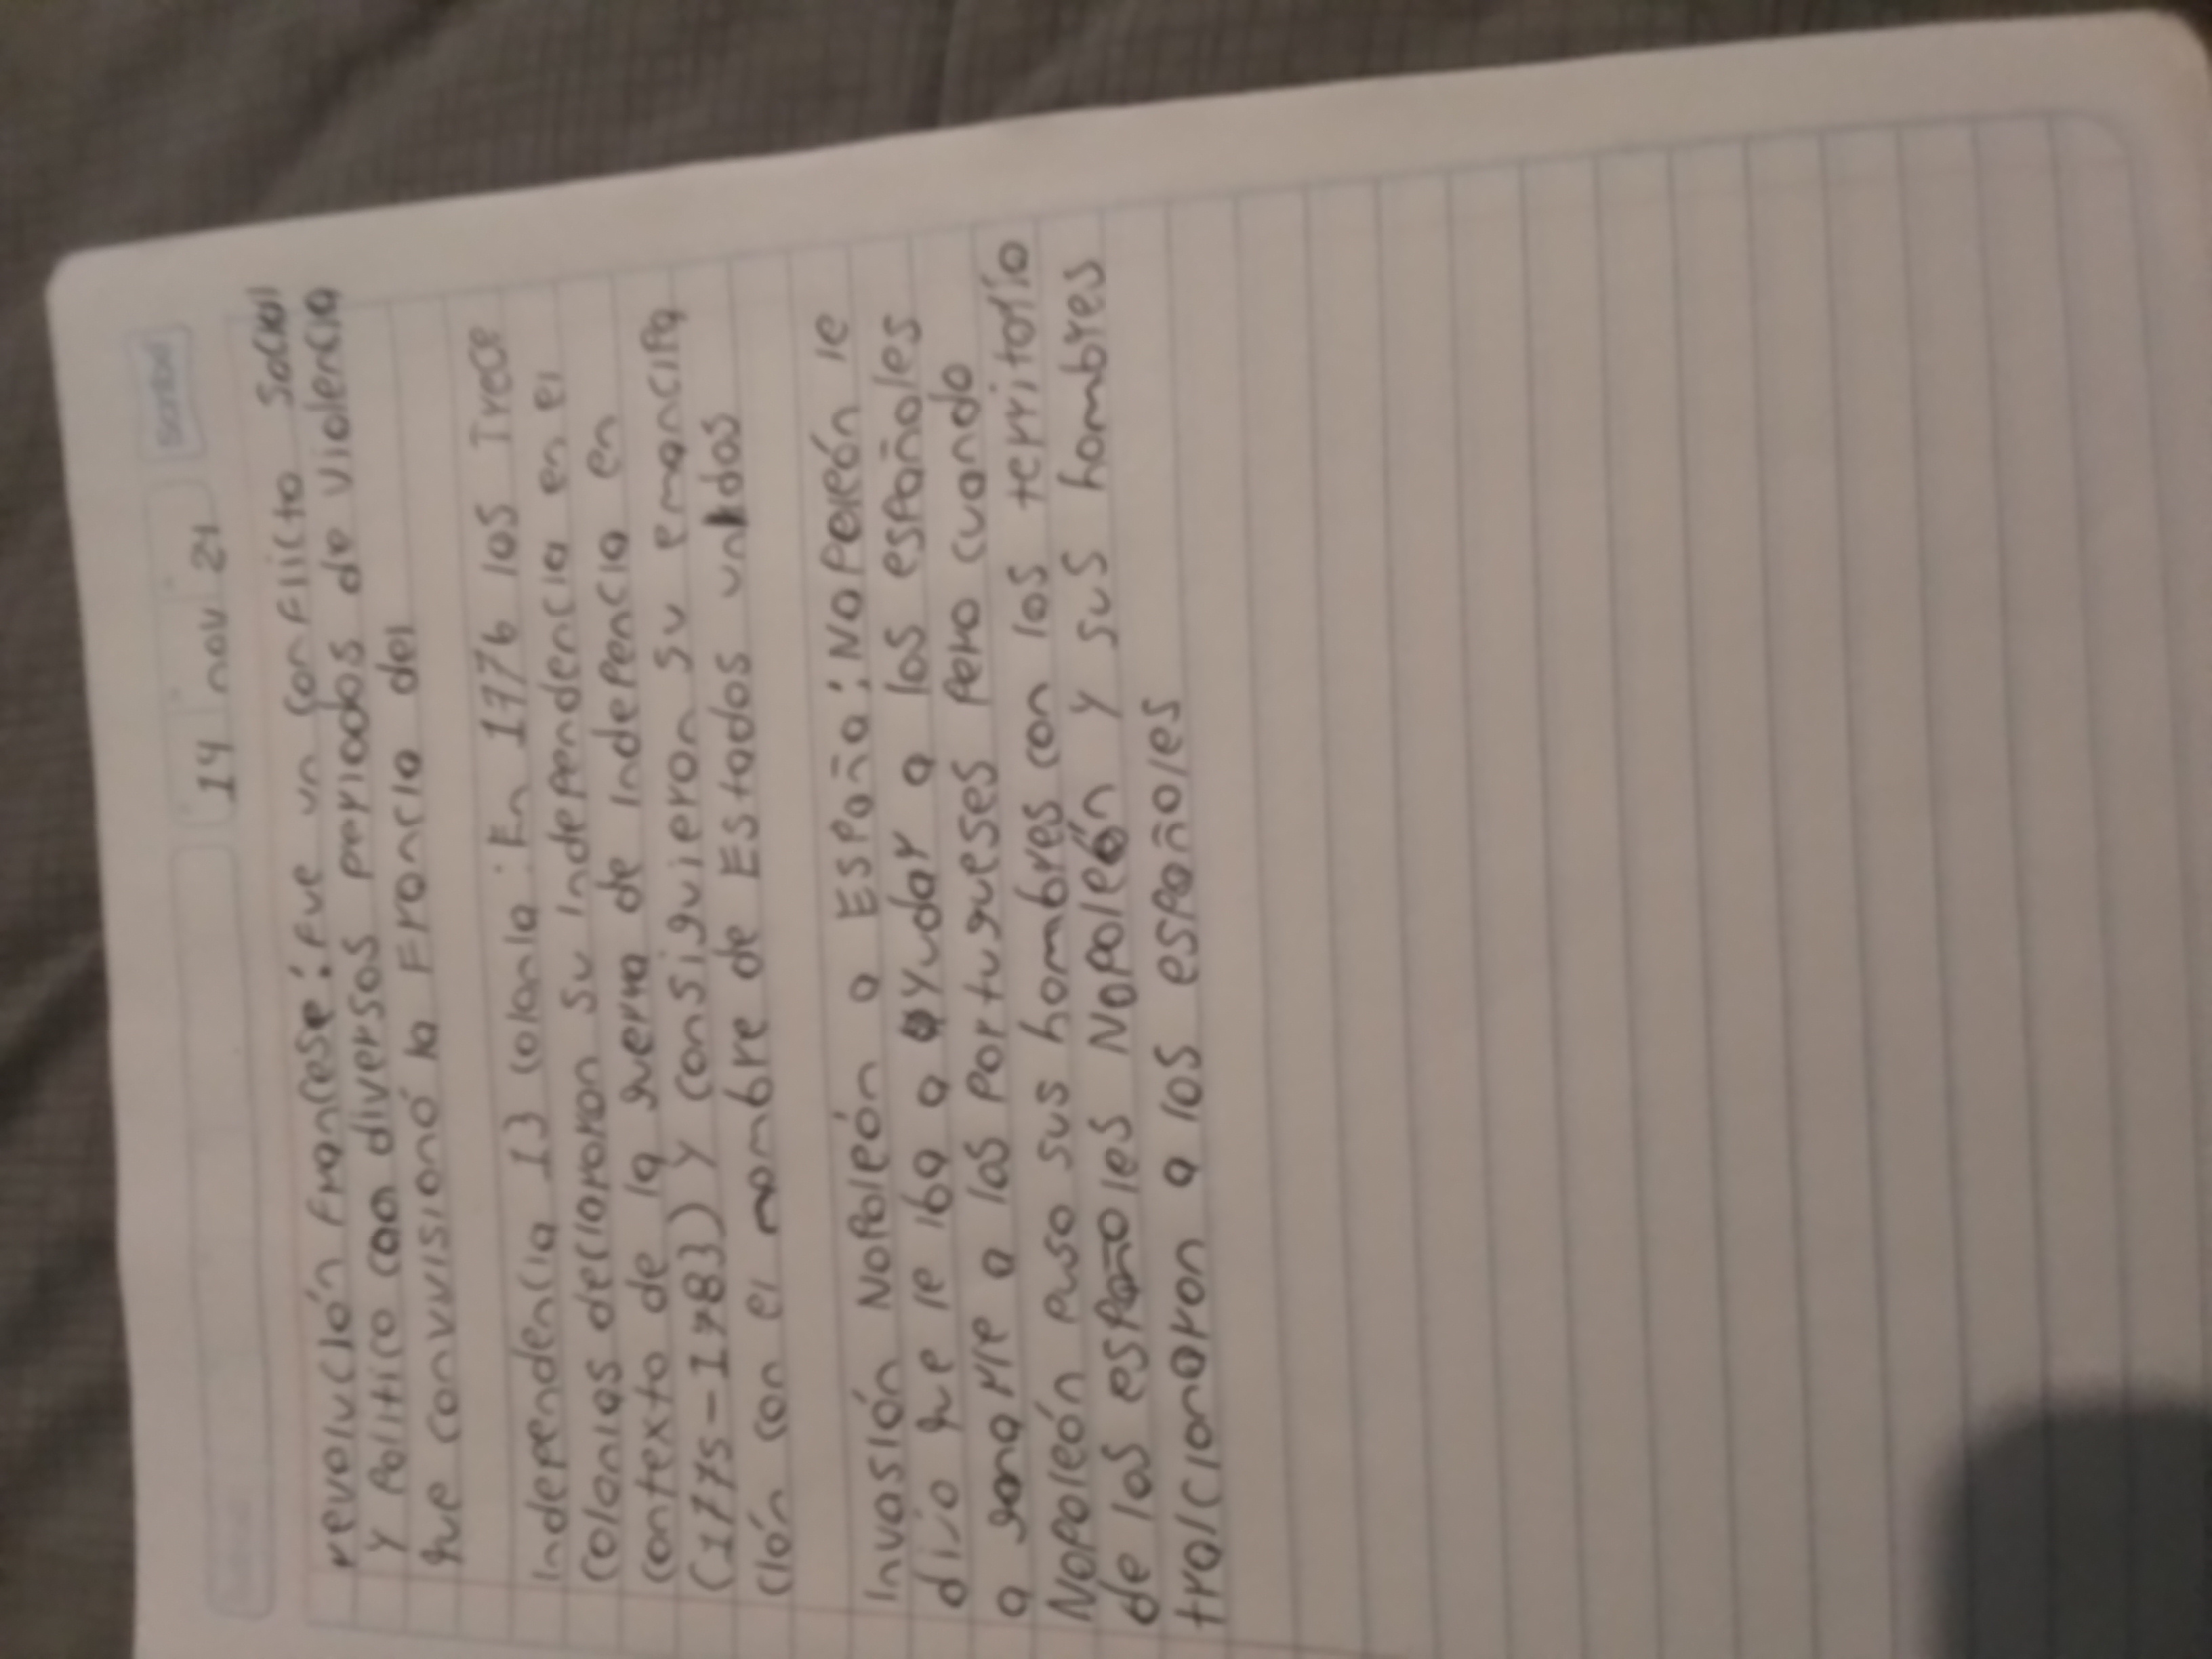 scribe
14 nov 21
revolución francese: fue un conflicto social
y Politico con diversos periodos de violencia
que convuisionó la Francia del
Independencia 13 colonia: En 1776 los Trece
Colonias declararon su independencia en el
contexto de la guerra de indepencia en
(1775-1783) y consiguieron su emancipa
ción con el nombre de Estados unidos
Invasión Napoleón a España: Napeleón le
dijo que le iba a ayudar a los españoles
a ganarle a los portugueses pero cuando
Napoleón puso sus hombres con los territorio
de los españoles Napoleón y sus hombres
traicionaron a los españoles